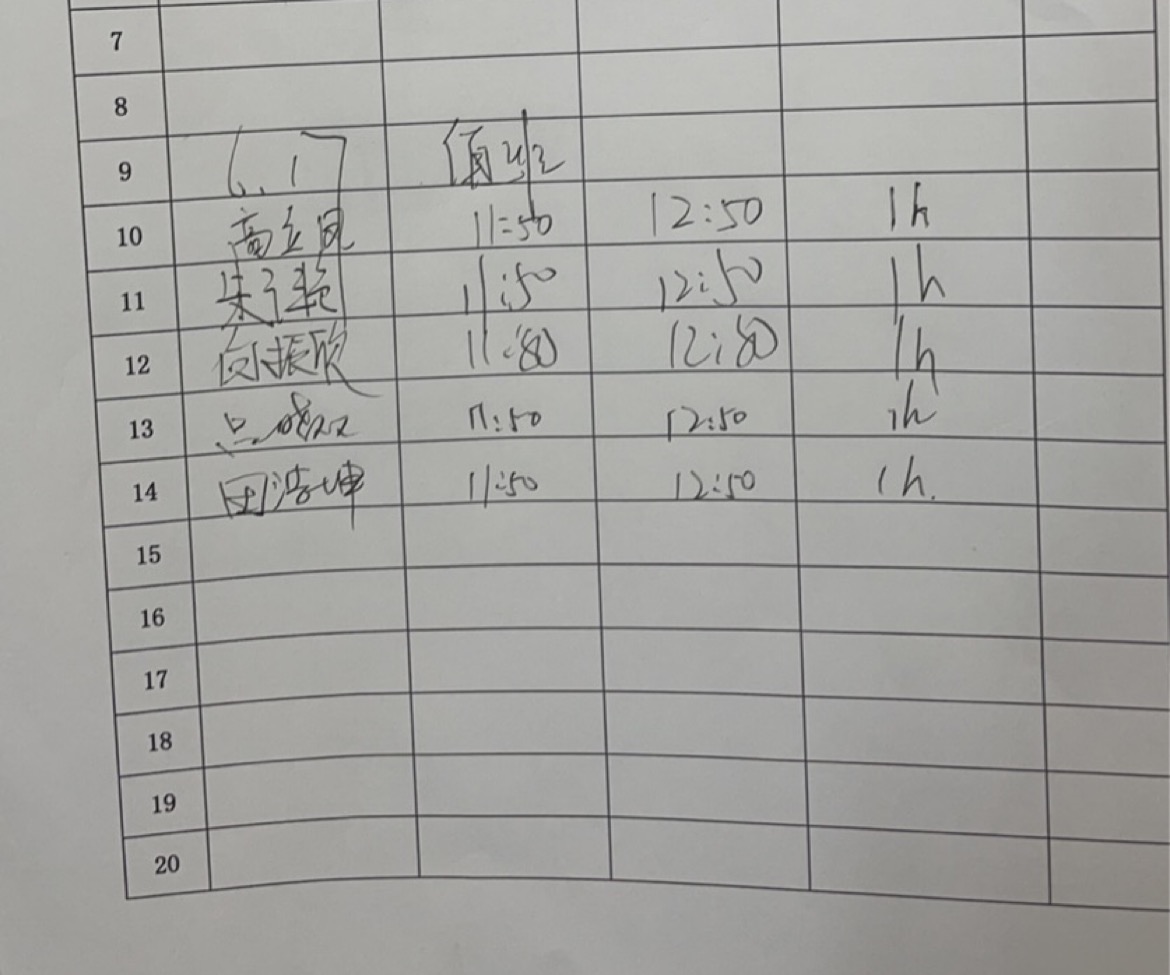 7
8
9 值班
10 高立凤 11:50 12:50 1h
11 朱子艳 11:50 12:50 1h
12 向振欣 11:50 12:50 1h
13 11:50 12:50 1h
14 田浩坤 11:50 12:50 1h.
15
16
17
18
19
20